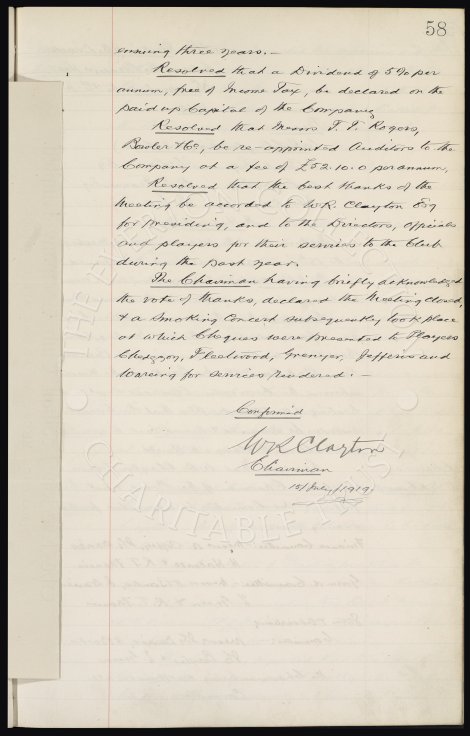 58
ensuing three years. —
Resolved that a Dividend of 5% per
annum, free of Income Tax, be declared on the
paid up Capital of the Company
Resolved that Messrs T. T. Rogers,
Bowler & Co, be re-appointed Auditors to the
Company at a fee of £52.10.0 per annum,
Resolved that the best thanks of the
meeting be accorded to W.R. Clayton Esq
for presiding, and to the Directors, officials
and players for their services to the Club
during the past year.
The Chairman having briefly acknowledged
the vote of thanks, declared the Meeting closed,
& a Smoking Concert subsequently took place
at which Cheques were presented to Players
Chedgzoy, Fleetwood, Grenyer, Jefferis and
Wareing for services rendered : —
Confirmed
W R Clayton
Chairman
15/July/1919
THE EVERTON
CHARITABLE TRUST